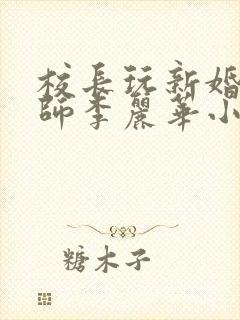 校長玩新婚
師李麗華小
糖木子